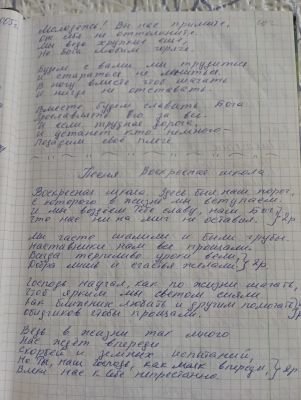 Молодёжь! Вы нас примите,
От себя не оттолкните.
Мы ведь хрупкие ещё,
Но Бога любим горячо.
Будем с вами мы трудиться
И стараться не лениться.
В ногу вместе чтоб шагать
И нигде не отставать.
Вместе будем славить Бога
Прославлять Его за всё.
И если трудная дорога
И устанет кто немного
Подадим своё плечо
Песня Воскресная школа
Воскресная школа. Здесь был наш порог,
С которого в жизнь мы вступаем
И мы воздаём Тебе славу, наш Бог
Что нас ни на миг не оставил. 2р.
Мы часто шалили и были грубы.
Наставники нам всё прощали.
Всегда терпеливо уроки вели
Добра лишь и счастья желали 2р.
Господь научал, как по жизни шагать,
Чтоб ярким мы светом сияли
Как ближних любить и другим помогать
Обидчиков чтобы прощали. 2р.
Ведь в жизни так много
Нас ждёт впереди
Скорбей и земных испытаний,
Но Ты, наш Господь, как маяк впереди,
Влеки нас к себе непрестанно. 2р.